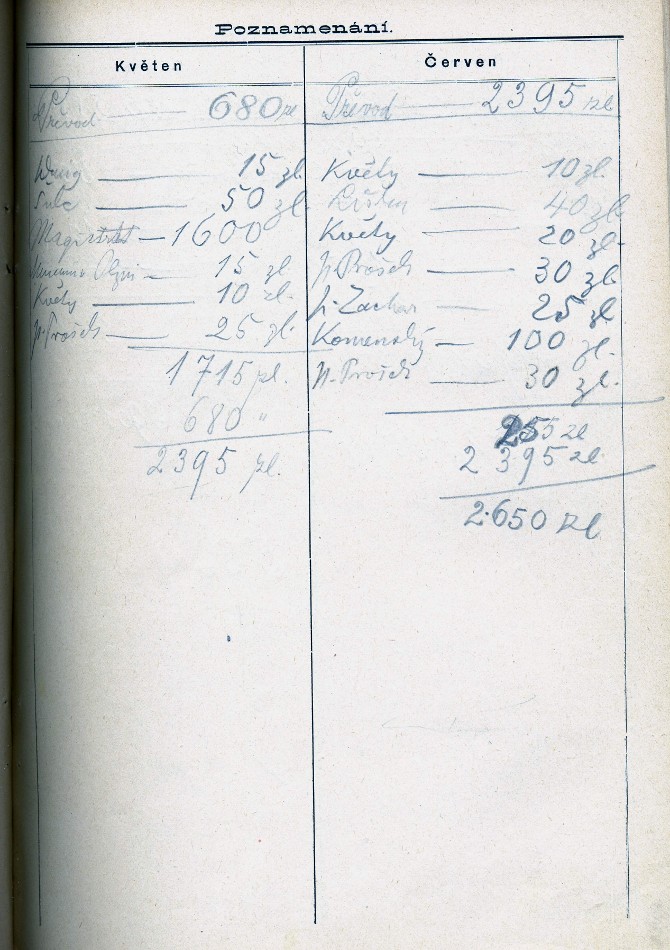 Poznamenání.
Květen
Převod — 680 zl
Wang — 15 zl.
Šulc — 50 zl
Magistrát — 1600
Olgni — 15 zl
Květy — 10 zl.
p. Prošek — 25 zl.
1715 zl.
680 "
2395 zl.
Červen
Převod — 2395 zl
Květy — 10 zl.
40 zl
Květy — 20 zl.
p. Prošek — 30 zl
p. Zachar — 25 zl
Komenský — 100 zl.
p. Prošek — 30 zl.
255 zl
2395 zl.
2.650 zl